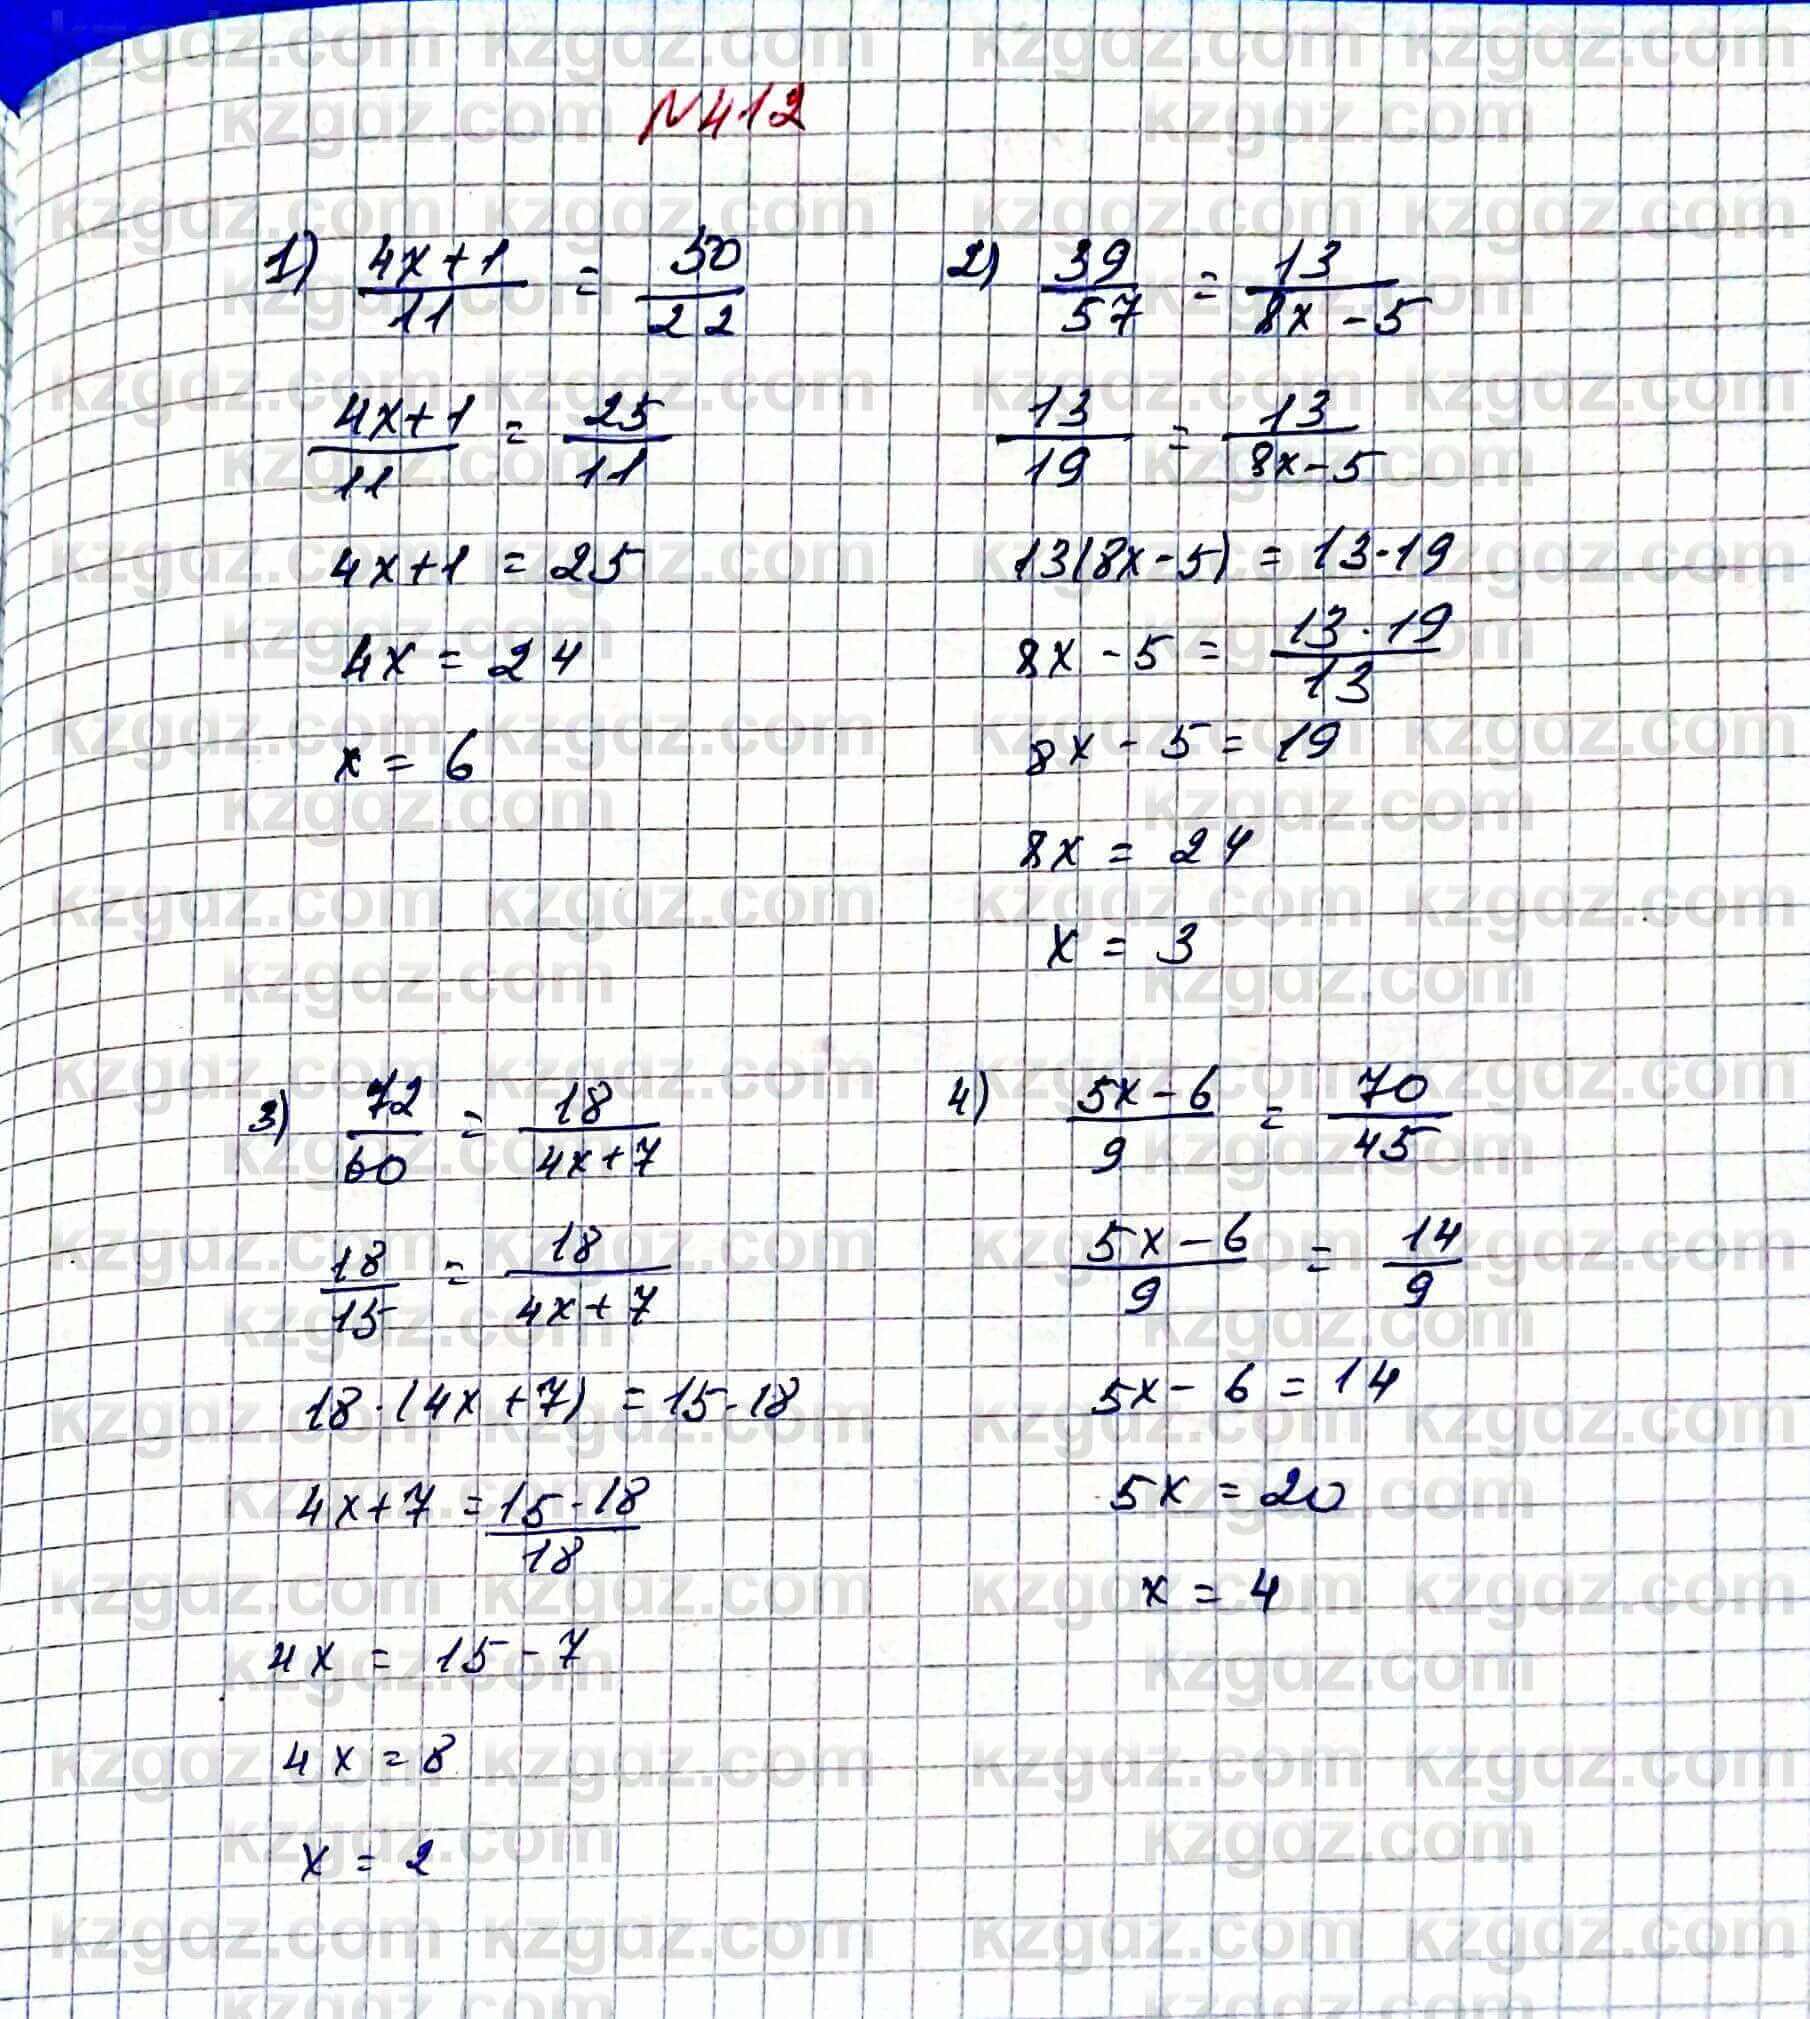 №412
1) (4x+1)/11 = 50/22
(4x+1)/11 = 25/11
4x+1 = 25
4x = 24
x = 6
2) 39/57 = 13/(8x-5)
13/19 = 13/(8x-5)
13(8x-5) = 13·19
8x-5 = (13·19)/13
8x-5 = 19
8x = 24
x = 3
3) 72/60 = 18/(4x+7)
18/15 = 18/(4x+7)
18·(4x+7) = 15·18
4x+7 = (15·18)/18
4x = 15-7
4x = 8
x = 2
4) (5x-6)/9 = 70/45
(5x-6)/9 = 14/9
5x-6 = 14
5x = 20
x = 4
kzgdz.com